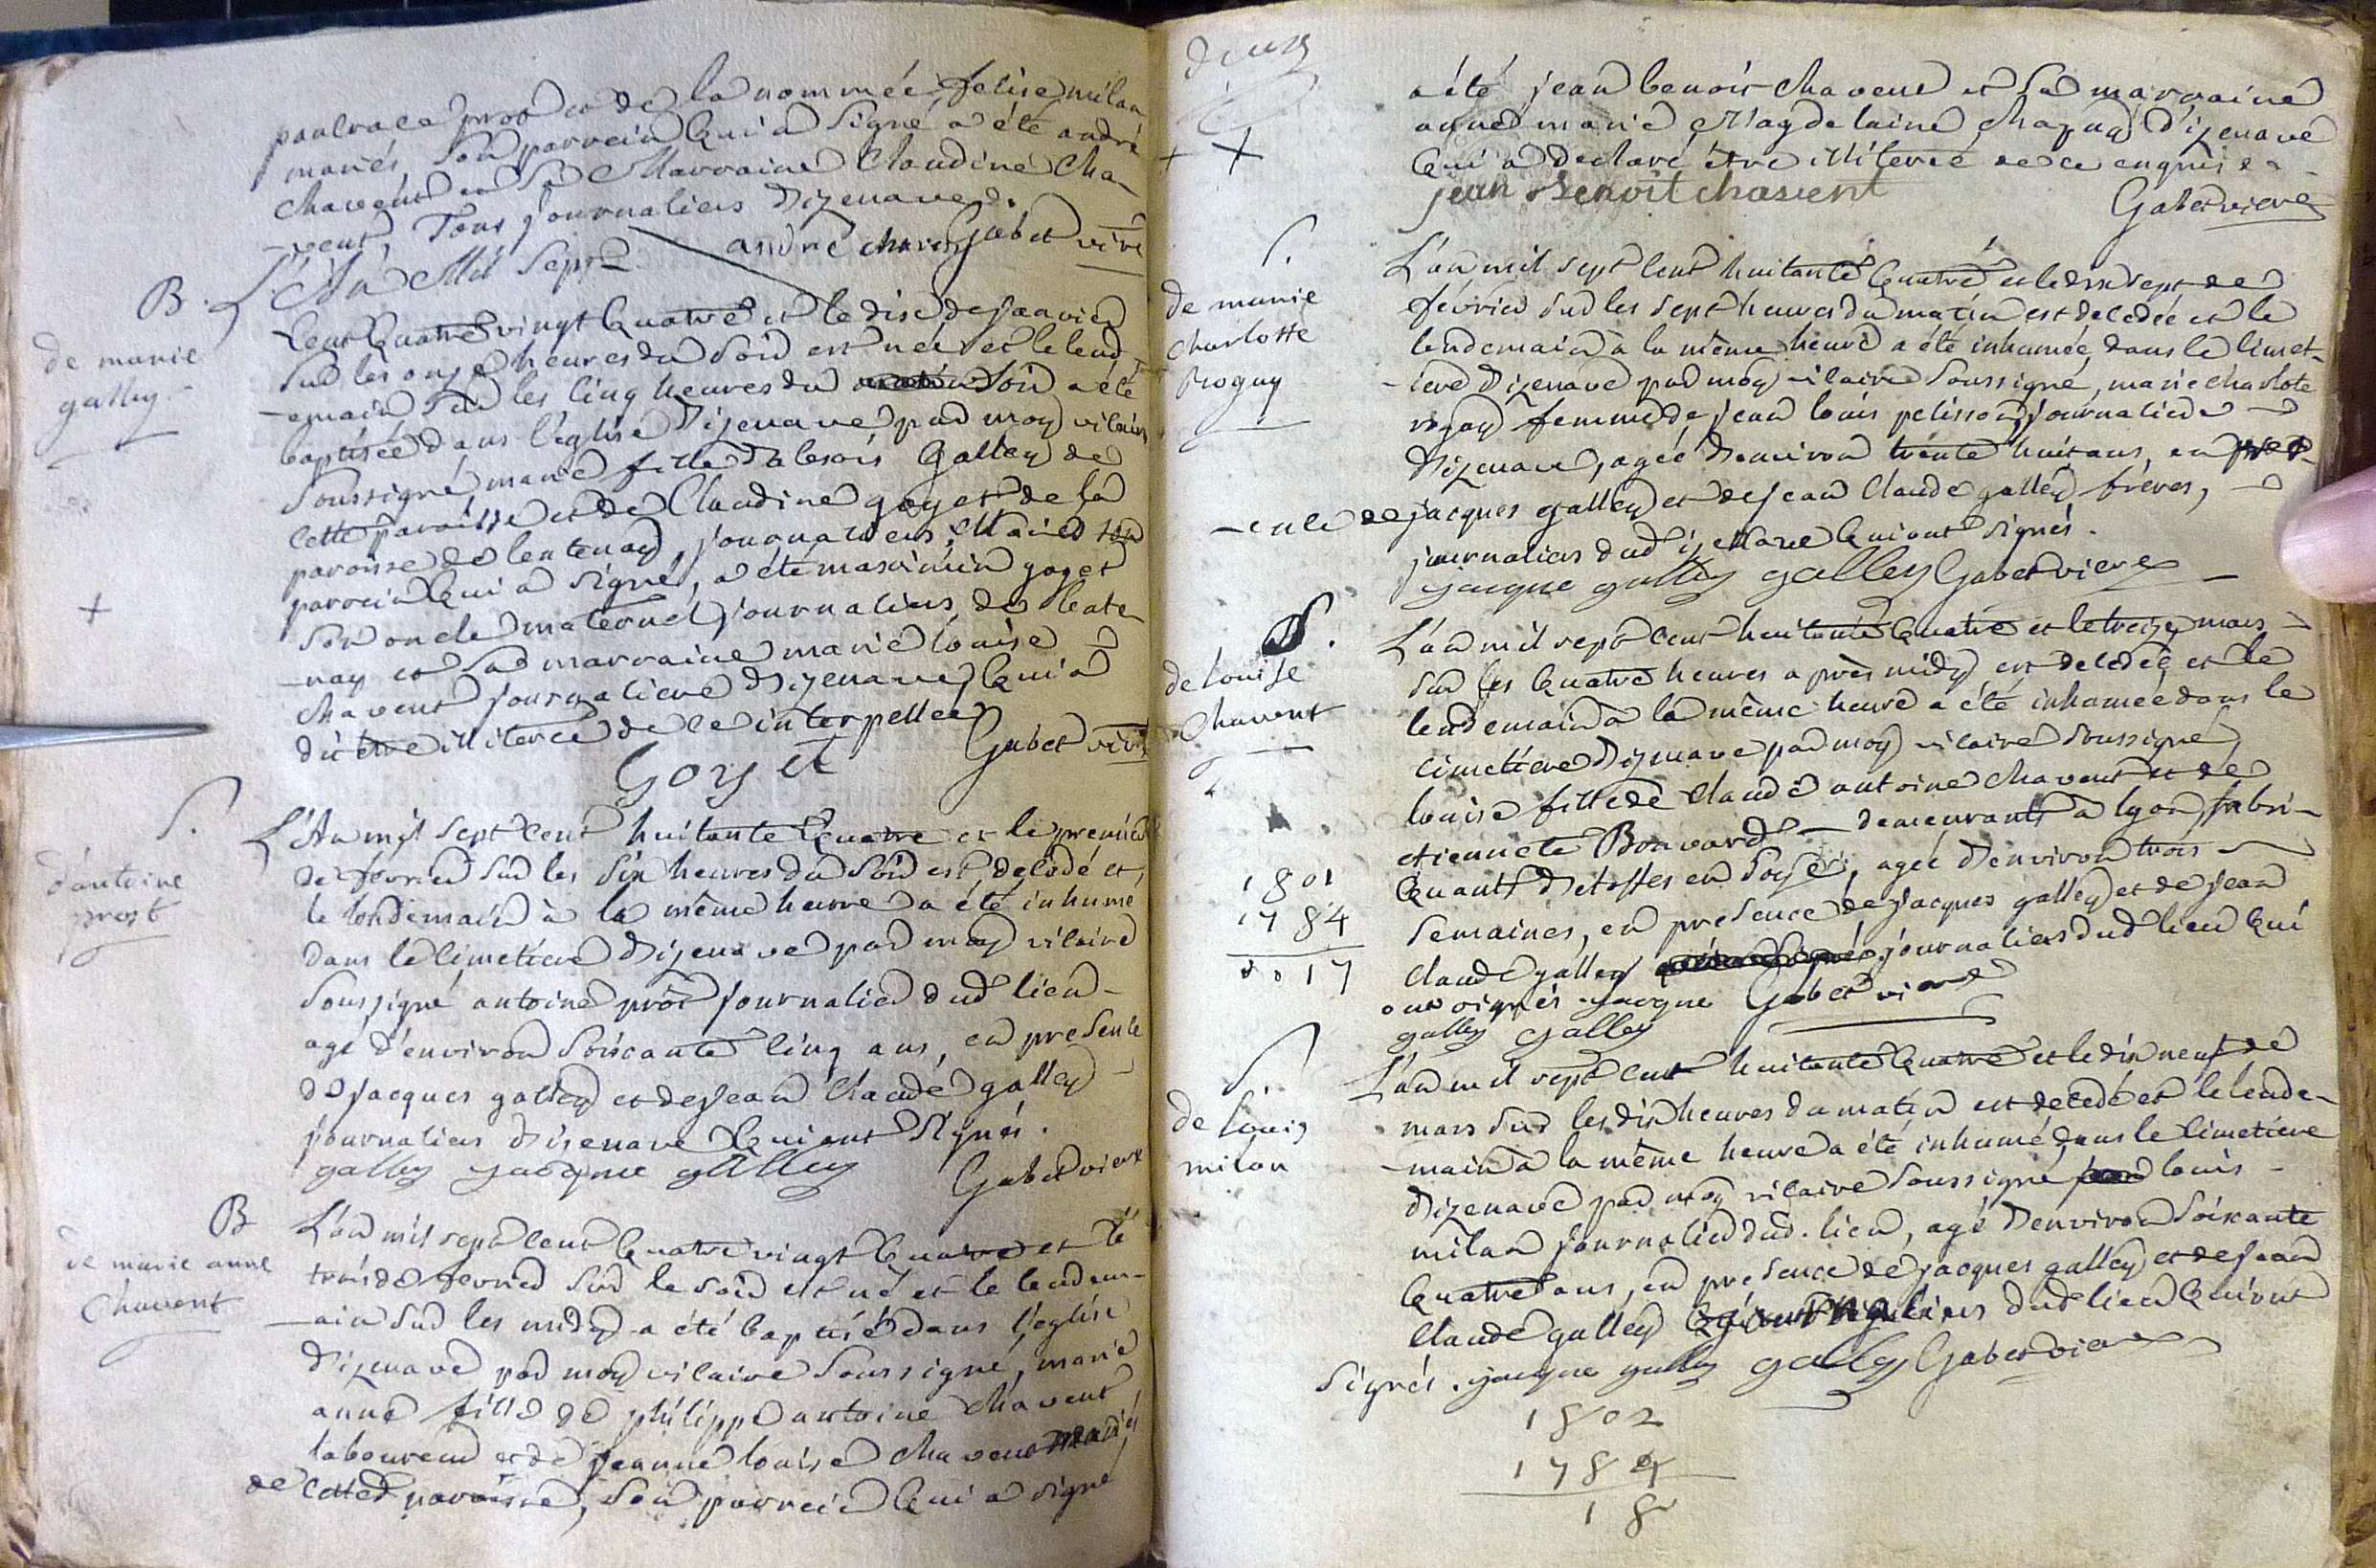 pancrace prost et de la nommée felise milan
mariés, son parrein qui a signé a été andré
chavent et sa Marraine Claudine Cha-
-vent, Tous journaliers d'izenave.
andré chavent Gabet vire
B.
de marie
galley
L'An Mil Sept
cent quatre vingt quatre et le dixe de janvier
sur les onze heures du soir est née et le lend-
-emain sur les cinq heures du soir a été
baptisée dans l'église d'izenave par moy vicaire
soussigné, marie fille d'alexis Galley de
cette paroisse et de Claudine goyet de la
paroisse de lentenay, journaliers, Mariés son
parrein qui a signé, a été maximin goyet
son oncle maternel journaliers de lente-
-nay et sa marraine marie louise
chavent journaliere d'izenave, qui a
dit être illiterée de ce interpellée
Goyet Gabet vire
S.
d'antoine
prost
L'An mil sept cent huitante quatre et le premier
de fevrier sur les six heures du soir est decedé et
le lendemain à la même heure a été inhumé
dans le cimetiere d'izenave par moy vicaire
soussigné antoine prôt journalier dud lieu-
agé d'environ soixante cinq ans, en presence
de jacques galley et de jean claude galley
journaliers d'isenave qui ont signés.
galley jacque galley Gabet vicre
B
de marie anne
Chavent
L'an mil sept cent quatre vingt quatre et le
trois de fevrier sur le soir est né et le lendem-
-ain sur les midy a été baptisé dans l'église
d'izenave par moy vicaire soussigné, marie
anne fille de philippe antoine chavent
laboureur et de jeanne louise chavent mariés
de cette paroisse, son parrein qui a signé
deux
a été jean benoit chavent et sa marraine
anne marie Magdelaine d'izenave
qui a declaré être illiterée de ce enquise
jean Benoit chavent
Gabet vicre
S.
de marie
charlotte
Roguy
L'an mil sept cent huitante quatre et le dix sept de
février sur les sept heures du matin est decedée et le
lendemain à la même heure a été inhumée dans le cimet-
-iere d'izenave par moy vicaire soussigné, marie charlote
femme de jean louis pelisson, journalier
d'izenave, agée d'environ trente huit ans, en pres-
-ence de jacques galley et de jean claude galley frères,
journaliers dud izenave qui ont signés.
jacque galley galley Gabet vicre
S.
de louise
Chavent
L'an mil sept cent huitante quatre et le treize mars
sur les quatre heures après midy est decedée et le
lendemain à la même heure a été inhumée dans le
cimetiere d'izenave par moy vicaire soussigné,
louise fille de claude antoine chavent et de
etiennete Bonvard demeurants à lyon fabri-
quants d'etoffes en soye, agée d'environ trois
semaines, en presence de jacques galley et de jean
claude galley journaliers dud lieu qui
ont signés. jacque Gabet vicre
galley galley
1801
1784
0017
S.
de louis
milan
L'an mil sept cent huitante quatre et le dix neuf de
mars sur les dix heures du matin est decedé et le lende-
-main à la même heure a été inhumé dans le cimetiere
d'izenave par moy vicaire soussigné louis
milan journalier dud. lieu, agé d'environ soixante
quatre ans, en presence de jacques galley et de jean
claude galley journaliers dud lieu qui ont
signés. jacque galley galley Gabet vicre
1802
1784
18